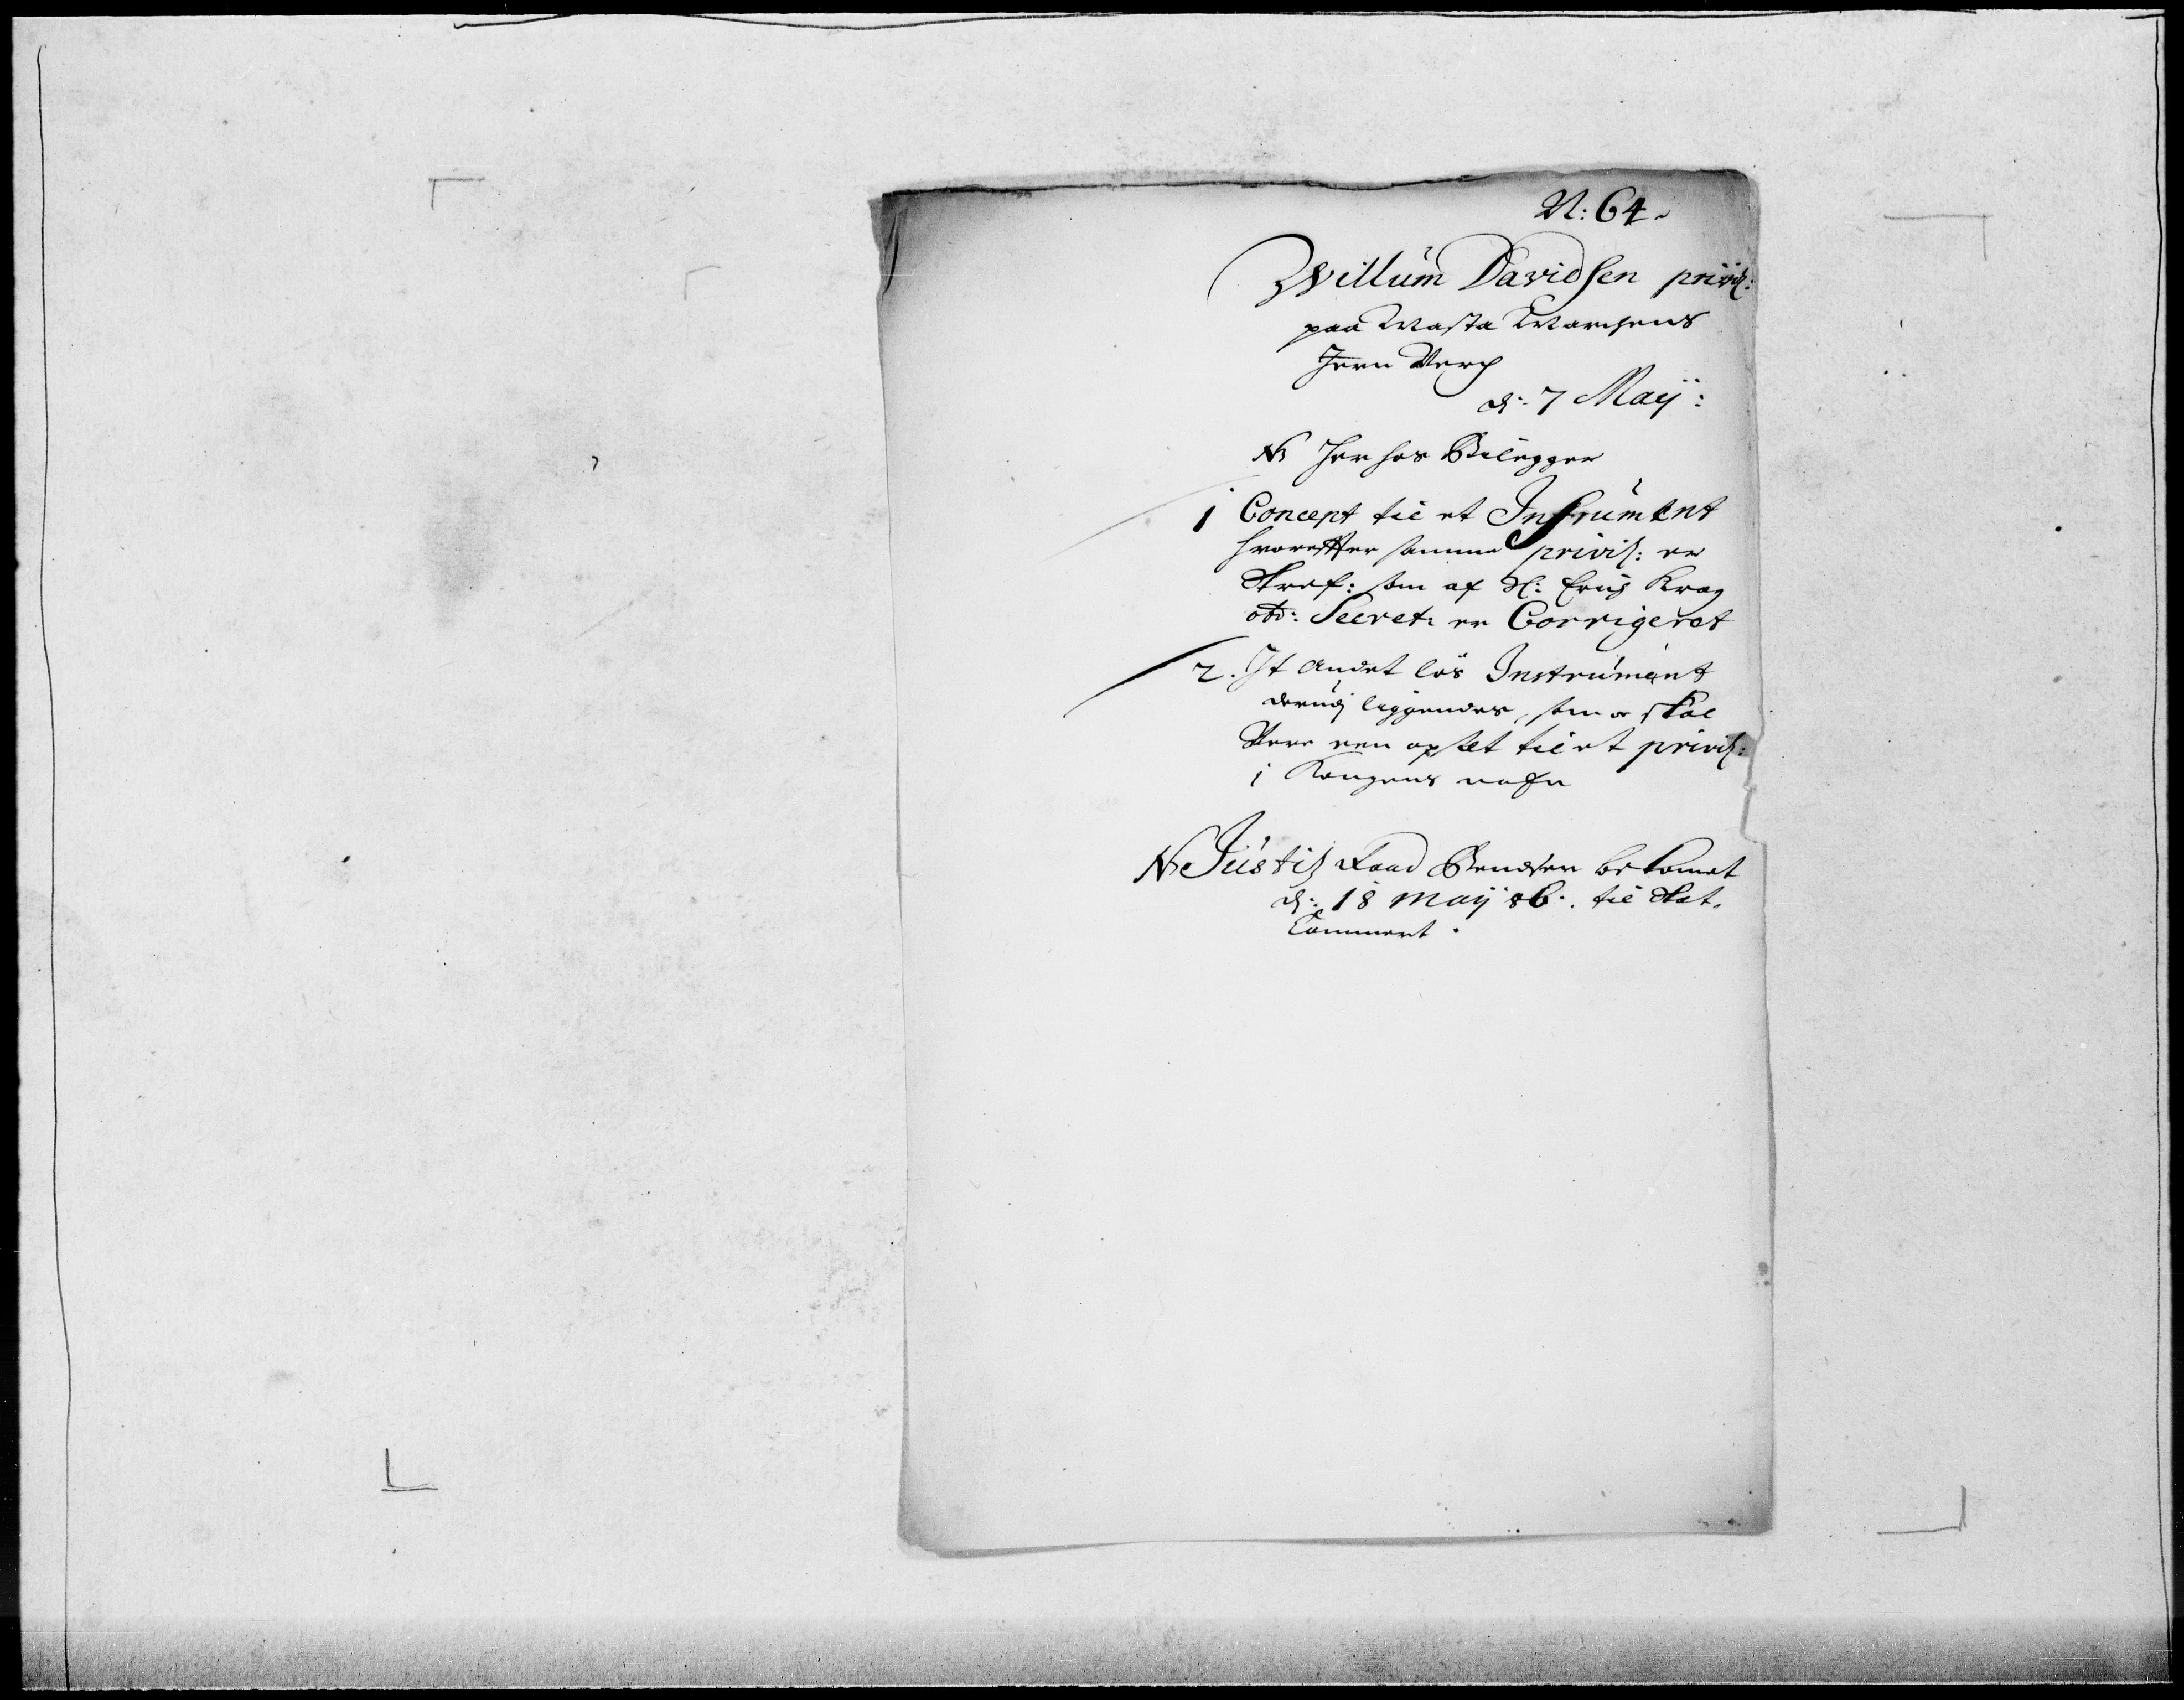 N: 64.
Willum Davidsen privil:
paa Masta Marchens
Jern Verch
d: 7 Maij:
NB Her hos Bilegger
1 Concept til et Instrument
hvorefter samme privil: er
Skref: som af H: Erich Krag
obr: Secret: er Corrigeret
2. It Andet løs Instrument
derudj liggendes, som oc skal
Vere een opset til et privil:
i Kongens nafn
NB Justitz Raad Bendsen bekomet
d: 18 Maij 86. til Skat.
Cammert.